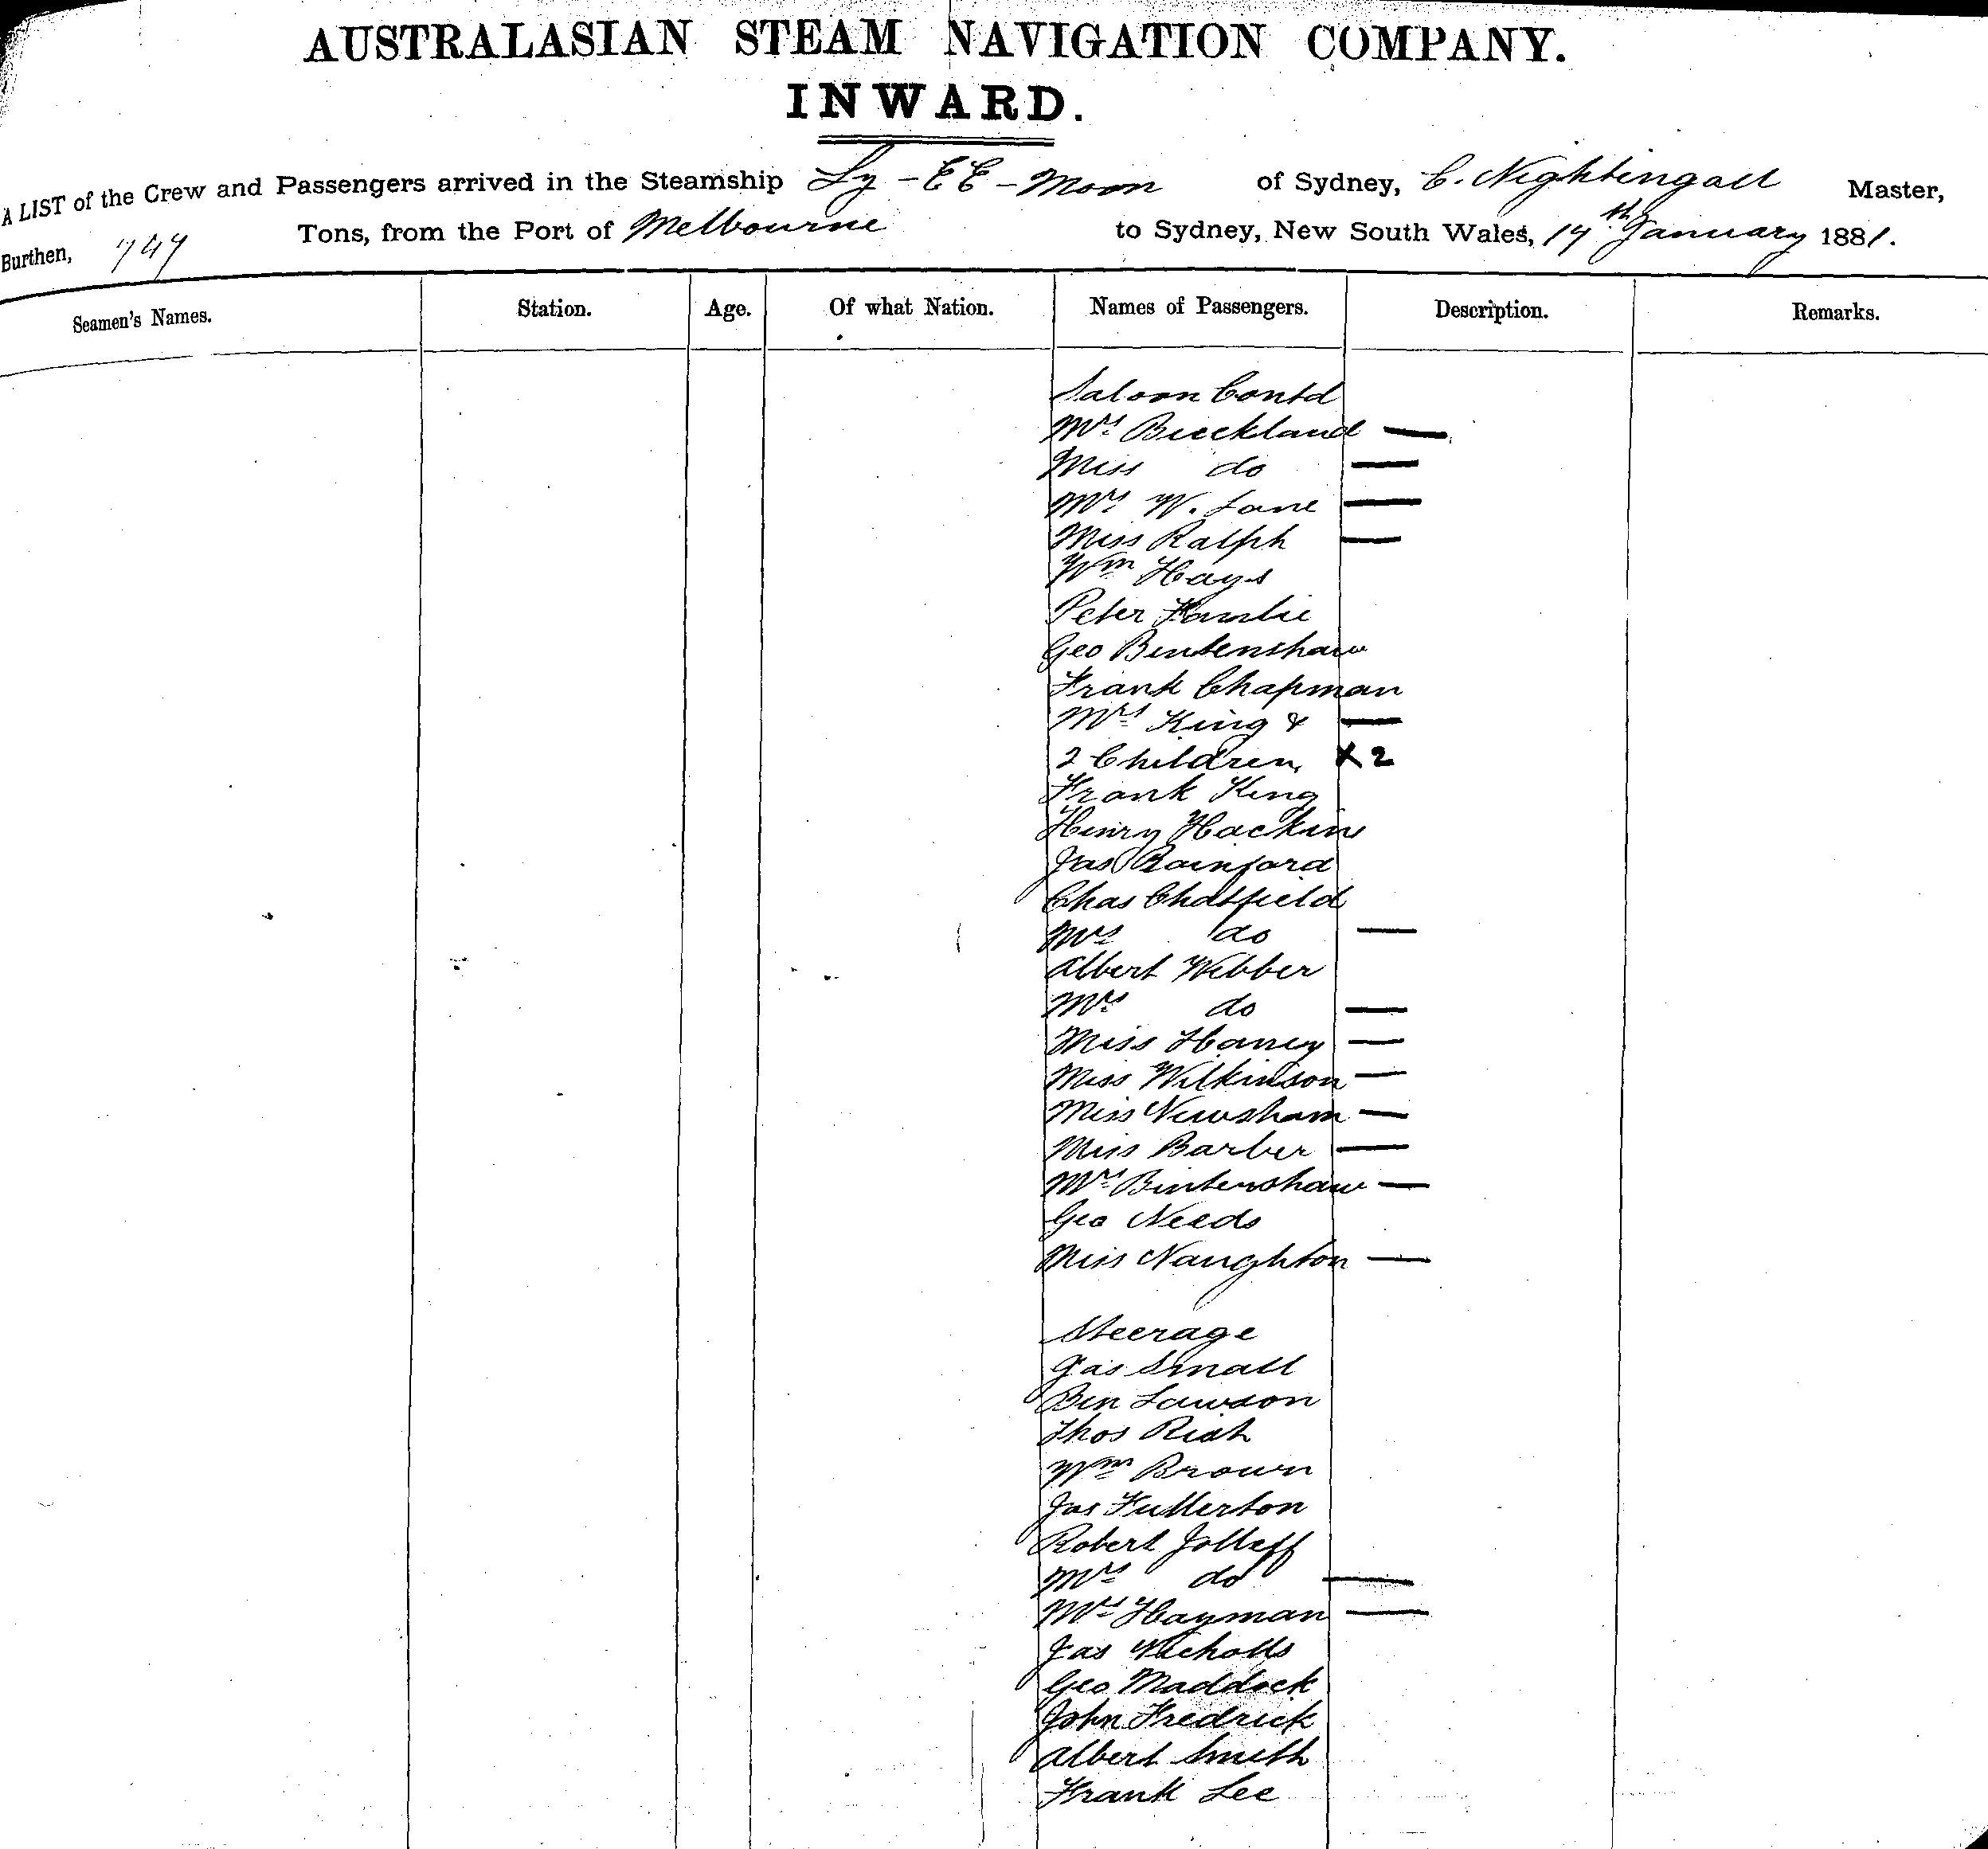 AUSTRALASIAN STEAM NAVIGATION COMPANY.
INWARD.
A LIST of the Crew and Passengers arrived in the Steamship Ly-EE-Moon of Sydney, C. Nightingall Master,
Burthen, Tons, from the Port of Melbourne to Sydney, New South Wales, th January 1881.
Seamen's Names. Station. Age. Of what Nation. Names of Passengers. Description. Remarks.
Saloon Contd
Mrs Buckland —
Miss do —
Mrs W. Lane —
Miss Ralph —
Wm Hays
Peter
Geo Bentenshaw
Frank Chapman
Mrs King & —
2 Children X 2
Frank King
Henry Hackins
Jas Rainford
Chas Chatfield
Mrs do —
Albert Webber
Mrs do —
Miss Haney —
Miss Wilkinson —
Miss Newsham —
Miss Barber —
Mrs Bintenshaw —
Geo Needs
Miss Naughton —
Steerage
Jas Small
Ben Lawson
Thos
Wm Brown
Jas Fullerton
Robert Jolleff
Mrs do —
Mrs Hayman —
Jas Nicholls
Geo Maddock
John Fredrick
Albert Smith
Frank Lee